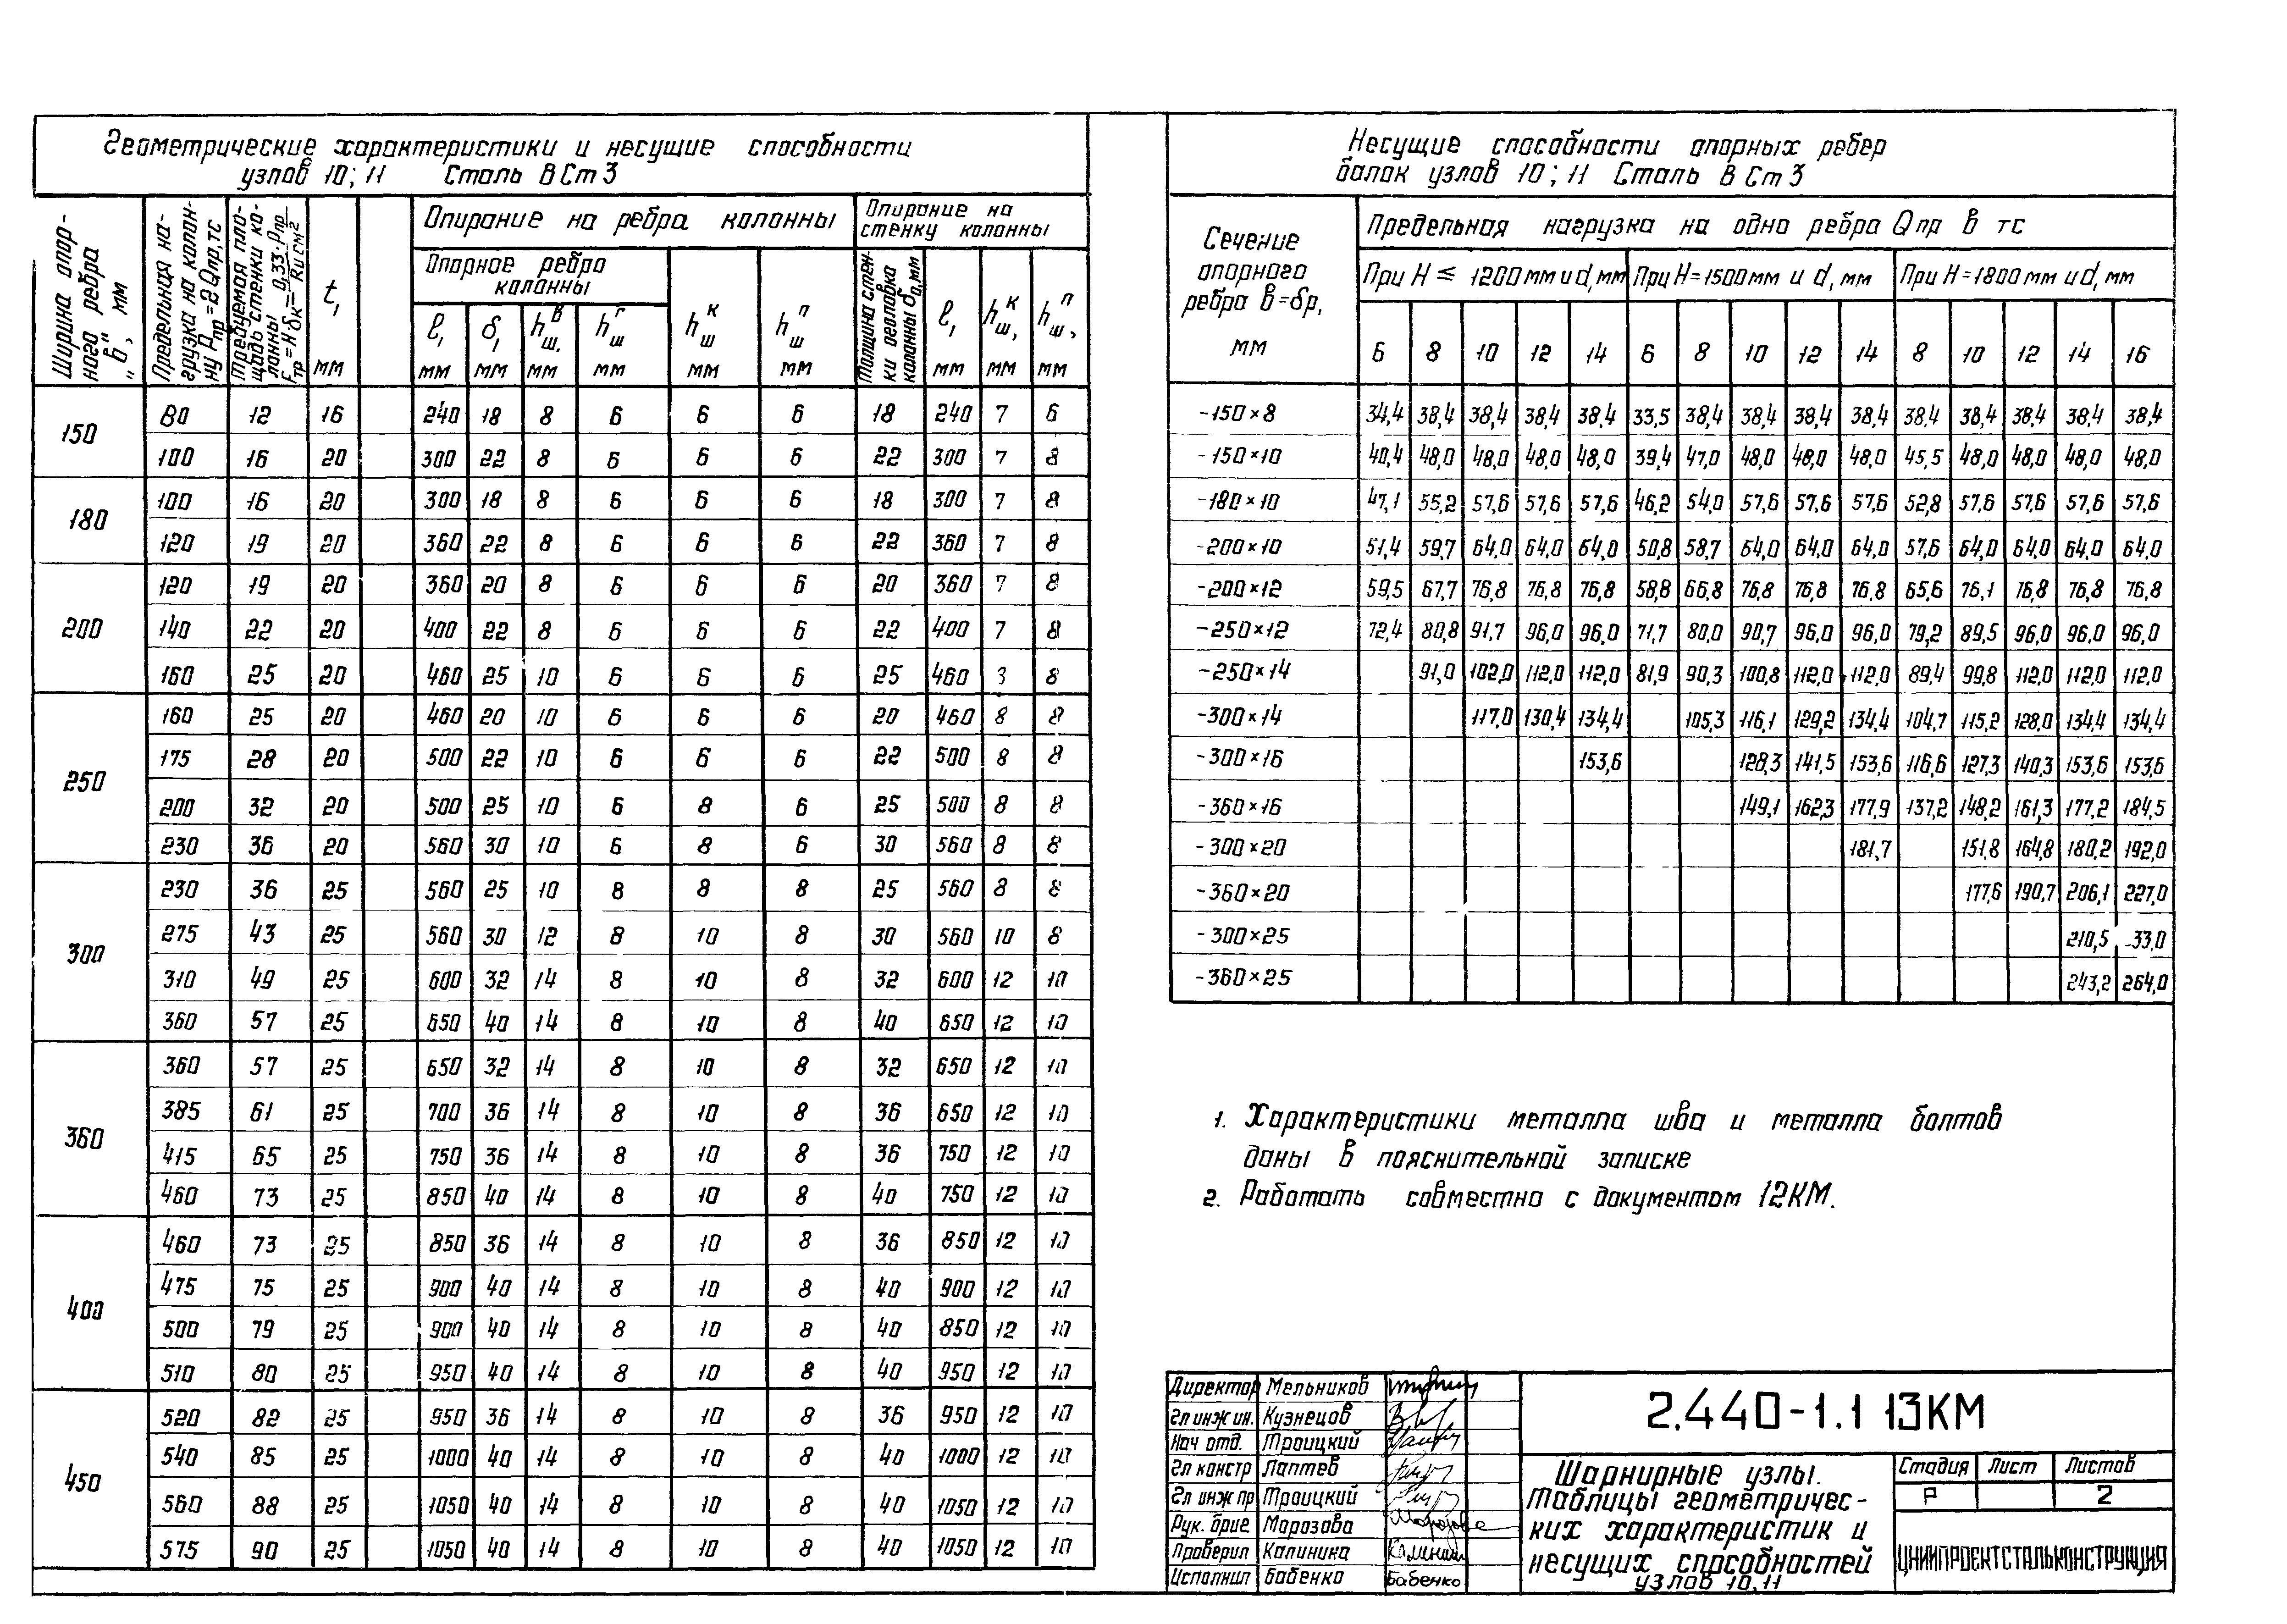 Геометрические характеристики и несущие способности
узлов 10; 11 Сталь ВСт3
Ширина опор-
ного ребра
„в", мм
Предельная на-
грузка на колон-
ну Рпр=2Qпр,тс
Требуемая пло-
щадь стенки ко-
лонны
Fтр=H·δк= 0,33·Рпр / Ru см²
t₁ мм
Опирание на ребра колонны
Опорное ребро
колонны
l₁ мм
δ₁ мм
hш.ᵇ мм
hшᴦ мм
hшᴷ мм
hшᴨ мм
Опирание на
стенку колонны
Толщина стен-
ки оголовка
колонны δ₀,мм
l₁ мм
hш,ᴷ мм
hш,ᴨ мм
150
80 12 16 240 18 8 6 6 6 18 240 7 6
100 16 20 300 22 8 6 6 6 22 300 7 8
180
100 16 20 300 18 8 6 6 6 18 300 7 8
120 19 20 360 22 8 6 6 6 22 360 7 8
200
120 19 20 360 20 8 6 6 6 20 360 7 8
140 22 20 400 22 8 6 6 6 22 400 7 8
160 25 20 460 25 10 6 6 6 25 460 3 8
250
160 25 20 460 20 10 6 6 6 20 460 8 8
175 28 20 500 22 10 6 6 6 22 500 8 8
200 32 20 500 25 10 6 8 6 25 500 8 8
230 36 20 560 30 10 6 8 6 30 560 8 8
300
230 36 25 560 25 10 8 8 8 25 560 8 8
275 43 25 560 30 12 8 10 8 30 560 10 8
310 49 25 600 32 14 8 10 8 32 600 12 10
360 57 25 650 40 14 8 10 8 40 650 12 10
360
360 57 25 650 32 14 8 10 8 32 650 12 10
385 61 25 700 36 14 8 10 8 36 650 12 10
415 65 25 750 36 14 8 10 8 36 750 12 10
460 73 25 850 40 14 8 10 8 40 750 12 10
400
460 73 25 850 36 14 8 10 8 36 850 12 10
475 75 25 900 40 14 8 10 8 40 900 12 10
500 79 25 900 40 14 8 10 8 40 850 12 10
510 80 25 950 40 14 8 10 8 40 950 12 10
450
520 82 25 950 36 14 8 10 8 36 950 12 10
540 85 25 1000 40 14 8 10 8 40 1000 12 10
560 88 25 1050 40 14 8 10 8 40 1050 12 10
575 90 25 1050 40 14 8 10 8 40 1050 12 10
Несущие способности опорных ребер
балок узлов 10; 11 Сталь ВСт3
Сечение
опорного
ребра в=δр,
мм
Предельная нагрузка на одно ребро Qпр в тс
При H ≤ 1200мм и d, мм При H=1500мм и d, мм При H=1800мм и d, мм
6 8 10 12 14 6 8 10 12 14 8 10 12 14 16
-150×8 34,4 38,4 38,4 38,4 38,4 33,5 38,4 38,4 38,4 38,4 38,4 38,4 38,4 38,4 38,4
-150×10 40,4 48,0 48,0 48,0 48,0 39,4 47,0 48,0 48,0 48,0 45,5 48,0 48,0 48,0 48,0
-180×10 47,1 55,2 57,6 57,6 57,6 46,2 54,0 57,6 57,6 57,6 52,8 57,6 57,6 57,6 57,6
-200×10 51,4 59,7 64,0 64,0 64,0 50,8 58,7 64,0 64,0 64,0 57,6 64,0 64,0 64,0 64,0
-200×12 59,5 67,7 76,8 76,8 76,8 58,8 66,8 76,8 76,8 76,8 65,6 76,1 76,8 76,8 76,8
-250×12 72,4 80,8 91,7 96,0 96,0 71,7 80,0 90,7 96,0 96,0 79,2 89,5 96,0 96,0 96,0
-250×14 91,0 102,0 112,0 112,0 81,9 90,3 100,8 112,0 112,0 89,4 99,8 112,0 112,0 112,0
-300×14 117,0 130,4 134,4 105,3 116,1 129,2 134,4 104,7 115,2 128,0 134,4 134,4
-300×16 153,6 128,3 141,5 153,6 116,6 127,3 140,3 153,6 153,6
-360×16 149,1 162,3 177,9 137,2 148,2 161,3 177,2 184,5
-300×20 181,7 151,8 164,8 180,2 192,0
-360×20 177,6 190,7 206,1 227,0
-300×25 210,5 -33,0
-360×25 243,2 264,0
1. Характеристики металла шва и металла болтов
даны в пояснительной записке
2. Работать совместно с документом 12КМ.
Директор Мельников
Гл инж ин. Кузнецов
Нач отд. Троицкий
Гл констр Лаптев
Гл инж пр Троицкий
Рук. бриг Морозова Морозова
Проверил Калинина Калинин
Исполнил Бабенко Бабенко
2.440-1.1 13КМ
Шарнирные узлы.
Таблицы геометричес-
ких характеристик и
несущих способностей
узлов 10,11
Стадия Лист Листов
Р 2
ЦНИИПРОЕКТСТАЛЬКОНСТРУКЦИЯ